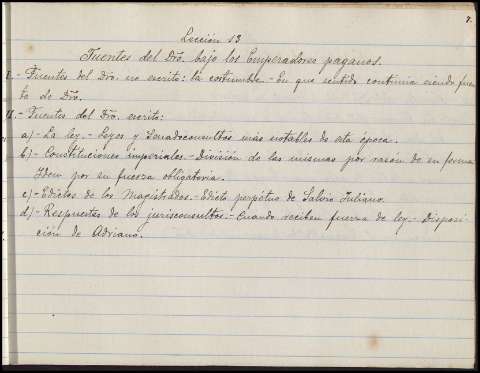 7.
Lección 13
Fuentes del Dro. bajo los Emperadores paganos.
I.- Fuentes del Dro. no escrito: la costumbre.- En que sentido continúa siendo fuen-
te de Dro.
II.- Fuentes del Dro. escrito:
a)- La ley.- Leyes y Senadoconsultos más notables de esta época.
b)- Constituciones imperiales.- División de las mismas por razón de su forma
Idem por su fuerza obligatoria.
c)- Edictos de los Magistrados.- Edicto perpétuo de Salvio Juliano.
d)- Respuestas de los jurisconsultos.- Cuando reciben fuerza de ley.- Disposi-
ción de Adriano.